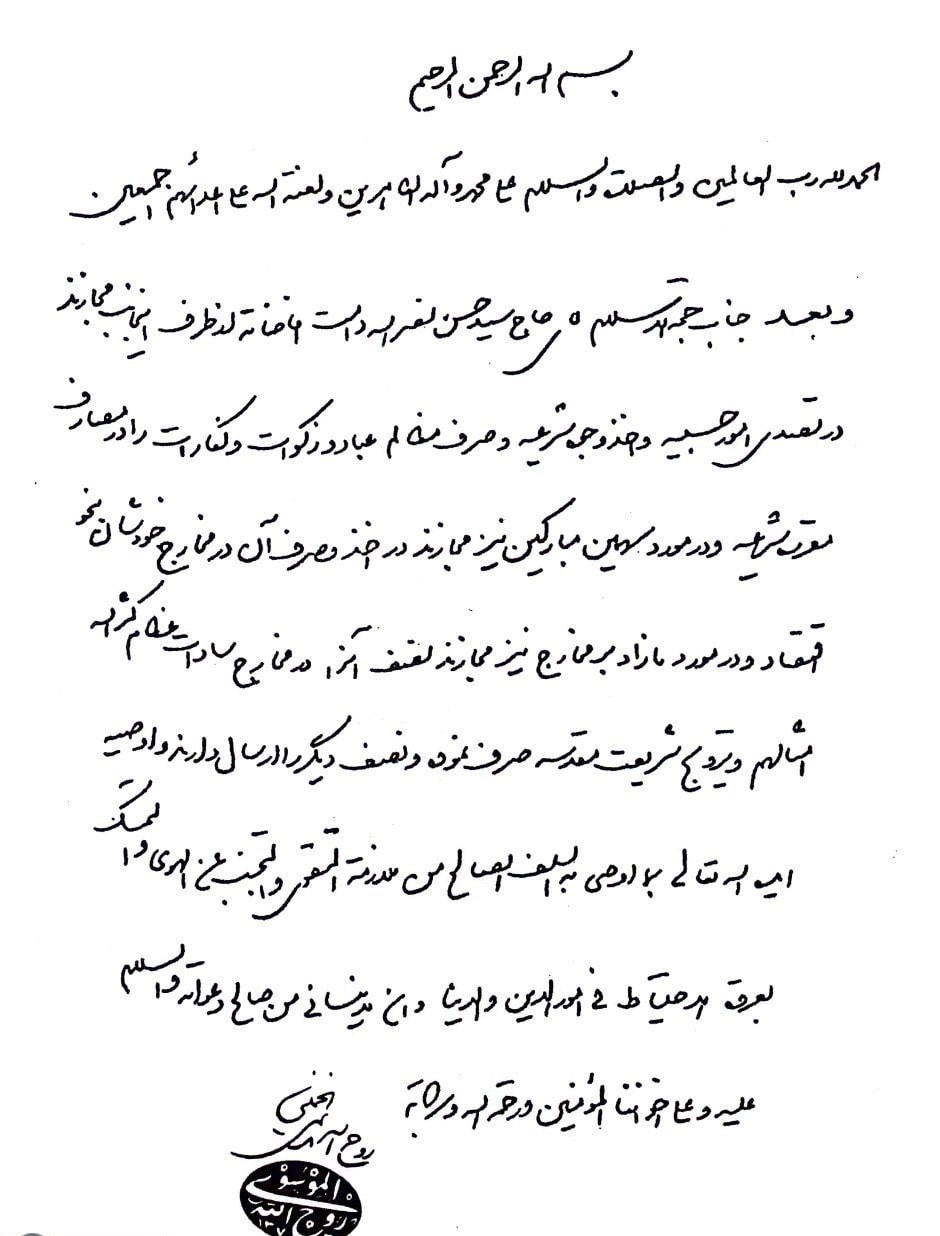 بسم الله الرحمن الرحیم
الحمد لله رب العالمین والصلوة والسلام علی محمد وآله الطاهرین ولعنة الله علی اعدائهم اجمعین
وبعد جناب حجة الاسلام آقای حاج سید حسن نصرالله دامت افاضاته از طرف اینجانب مجازند
در تصدی امور حسبیه و اخذ وجوه شرعیه و صرف مظالم عباد و زکوات و کفارات را در مصارف
مقرره شرعیه و در مورد سهمین مبارکین نیز مجازند در اخذ و صرف آن در مخارج خودشان بنحو
اقتصاد و در مورد مازاد بر مخارج نیز مجازند نصف آنرا در مخارج سادات عظام کثر الله
امثالهم و ترویج شریعت مقدسه صرف نموده و نصف دیگر را ارسال دارند و اوصیه
ایده الله تعالی بما اوصی به السلف الصالح من ملازمة التقوی والتجنب عن الهوی والتمسک
بعروة الاحتیاط فی امور الدین والدنیا وان لاینسانی من صالح دعواته والسلام
علیه وعلی اخواننا المؤمنین ورحمة الله وبرکاته
روح الله الموسوی الخمینی
الموسوی
روح الله